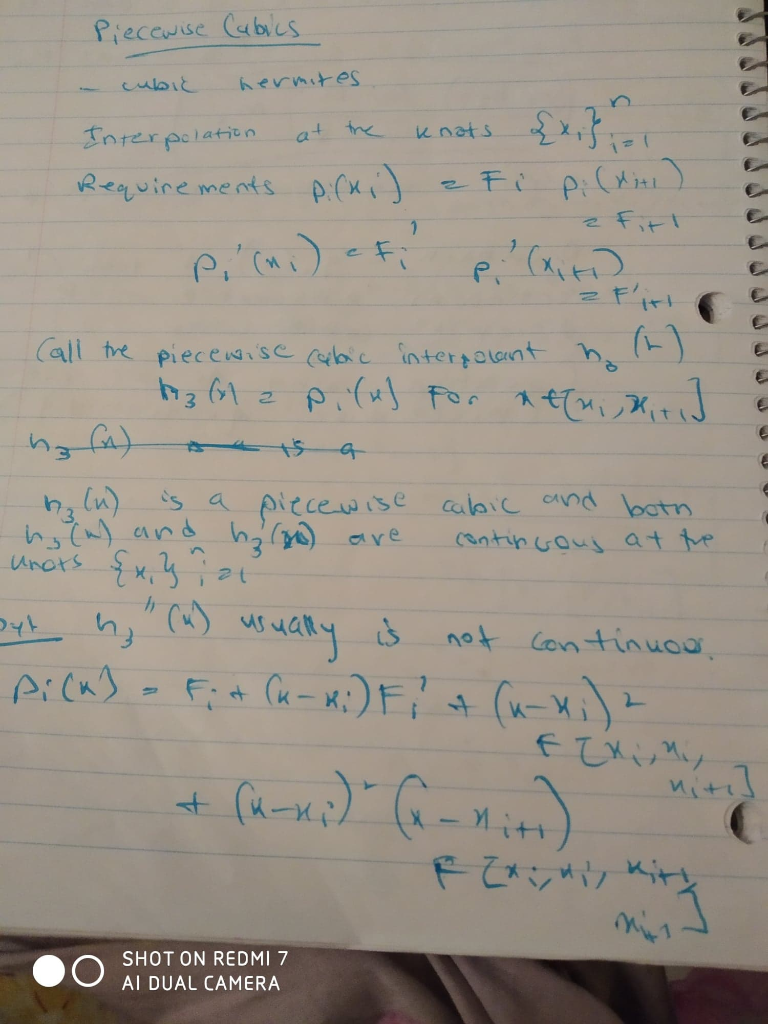 Piecewise Cubics
- cubic hermites
Interpolation at the knots {x_i}^n_{i=1}
Requirements p_i(x_i) = F_i p_i(x_{i+1})
= F_{i+1}
p_i'(x_i) = F_i' p_i'(x_{i+1})
= F'_{i+1}
Call the piecewise cubic interpolant h_3(x)
h_3(x) = p_i(x) For x ∈ [x_i, x_{i+1}]
h_3(x) is a
h_3(x) is a piecewise cubic and both
h_3(x) and h_3'(x) are continuous at the
knots {x_i}^n_{i=1}
but h_3''(x) usually is not continuous.
p_i(x) = F_i + (x-x_i)F_i' + (x-x_i)^2
F[x_i, x_i,
x_{i+1}]
+ (x-x_i)^2 (x-x_{i+1})
F[x_i, x_i, x_{i+1},
x_{i+1}]
SHOT ON REDMI 7
AI DUAL CAMERA